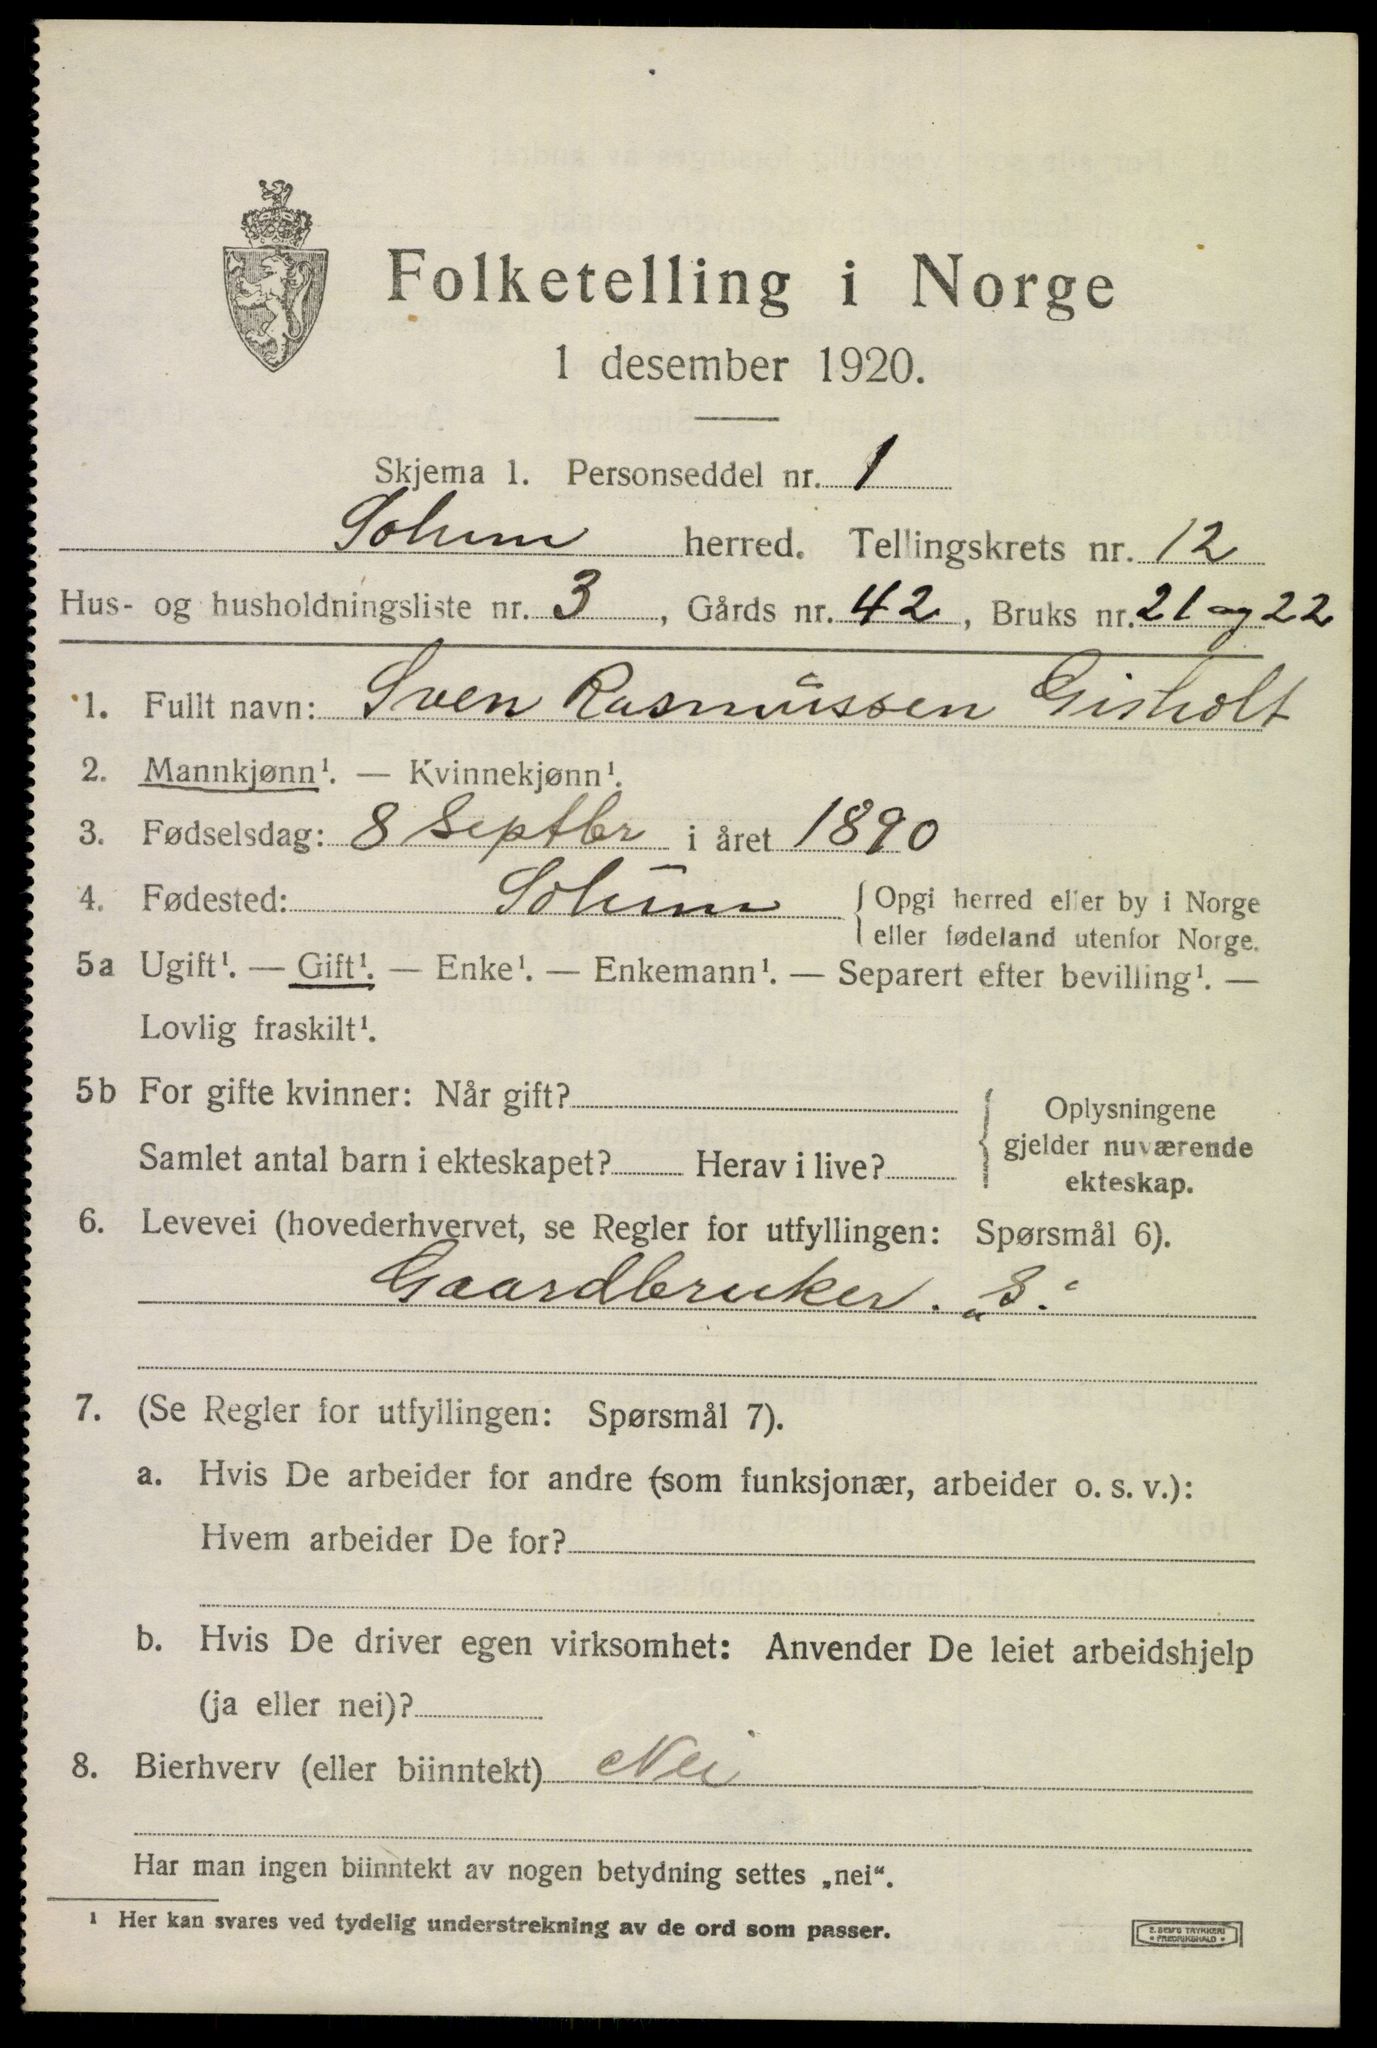 Folketelling i Norge
1 desember 1920.
Skjema 1. Personseddel nr. 1
Solum herred. Tellingskrets nr. 12
Hus- og husholdningsliste nr. 3, Gårds nr. 42, Bruks nr. 21 og 22
1. Fullt navn: Sven Rasmussen Gisholt
2. Mannkjønn¹. — Kvinnekjønn¹.
3. Fødselsdag: 8 Septbr i året 1890
4. Fødested: Solum { Opgi herred eller by i Norge
eller fødeland utenfor Norge.
5a Ugift¹. — Gift¹. — Enke¹. — Enkemann¹. — Separert efter bevilling¹. —
Lovlig fraskilt¹.
5b For gifte kvinner: Når gift?
Samlet antal barn i ekteskapet? Herav i live?
Oplysningene
gjelder nuværende
ekteskap.
6. Levevei (hovederhvervet, se Regler for utfyllingen: Spørsmål 6).
Gaardbruker. „S.“
7. (Se Regler for utfyllingen: Spørsmål 7).
a. Hvis De arbeider for andre (som funksjonær, arbeider o. s. v.):
Hvem arbeider De for?
b. Hvis De driver egen virksomhet: Anvender De leiet arbeidshjelp
(ja eller nei)?
8. Bierhverv (eller biinntekt) Nei
Har man ingen biinntekt av nogen betydning settes „nei“.
¹ Her kan svares ved tydelig understrekning av de ord som passer.
E. SEM'S TRYKKERI
• FREDRIKSHALD •